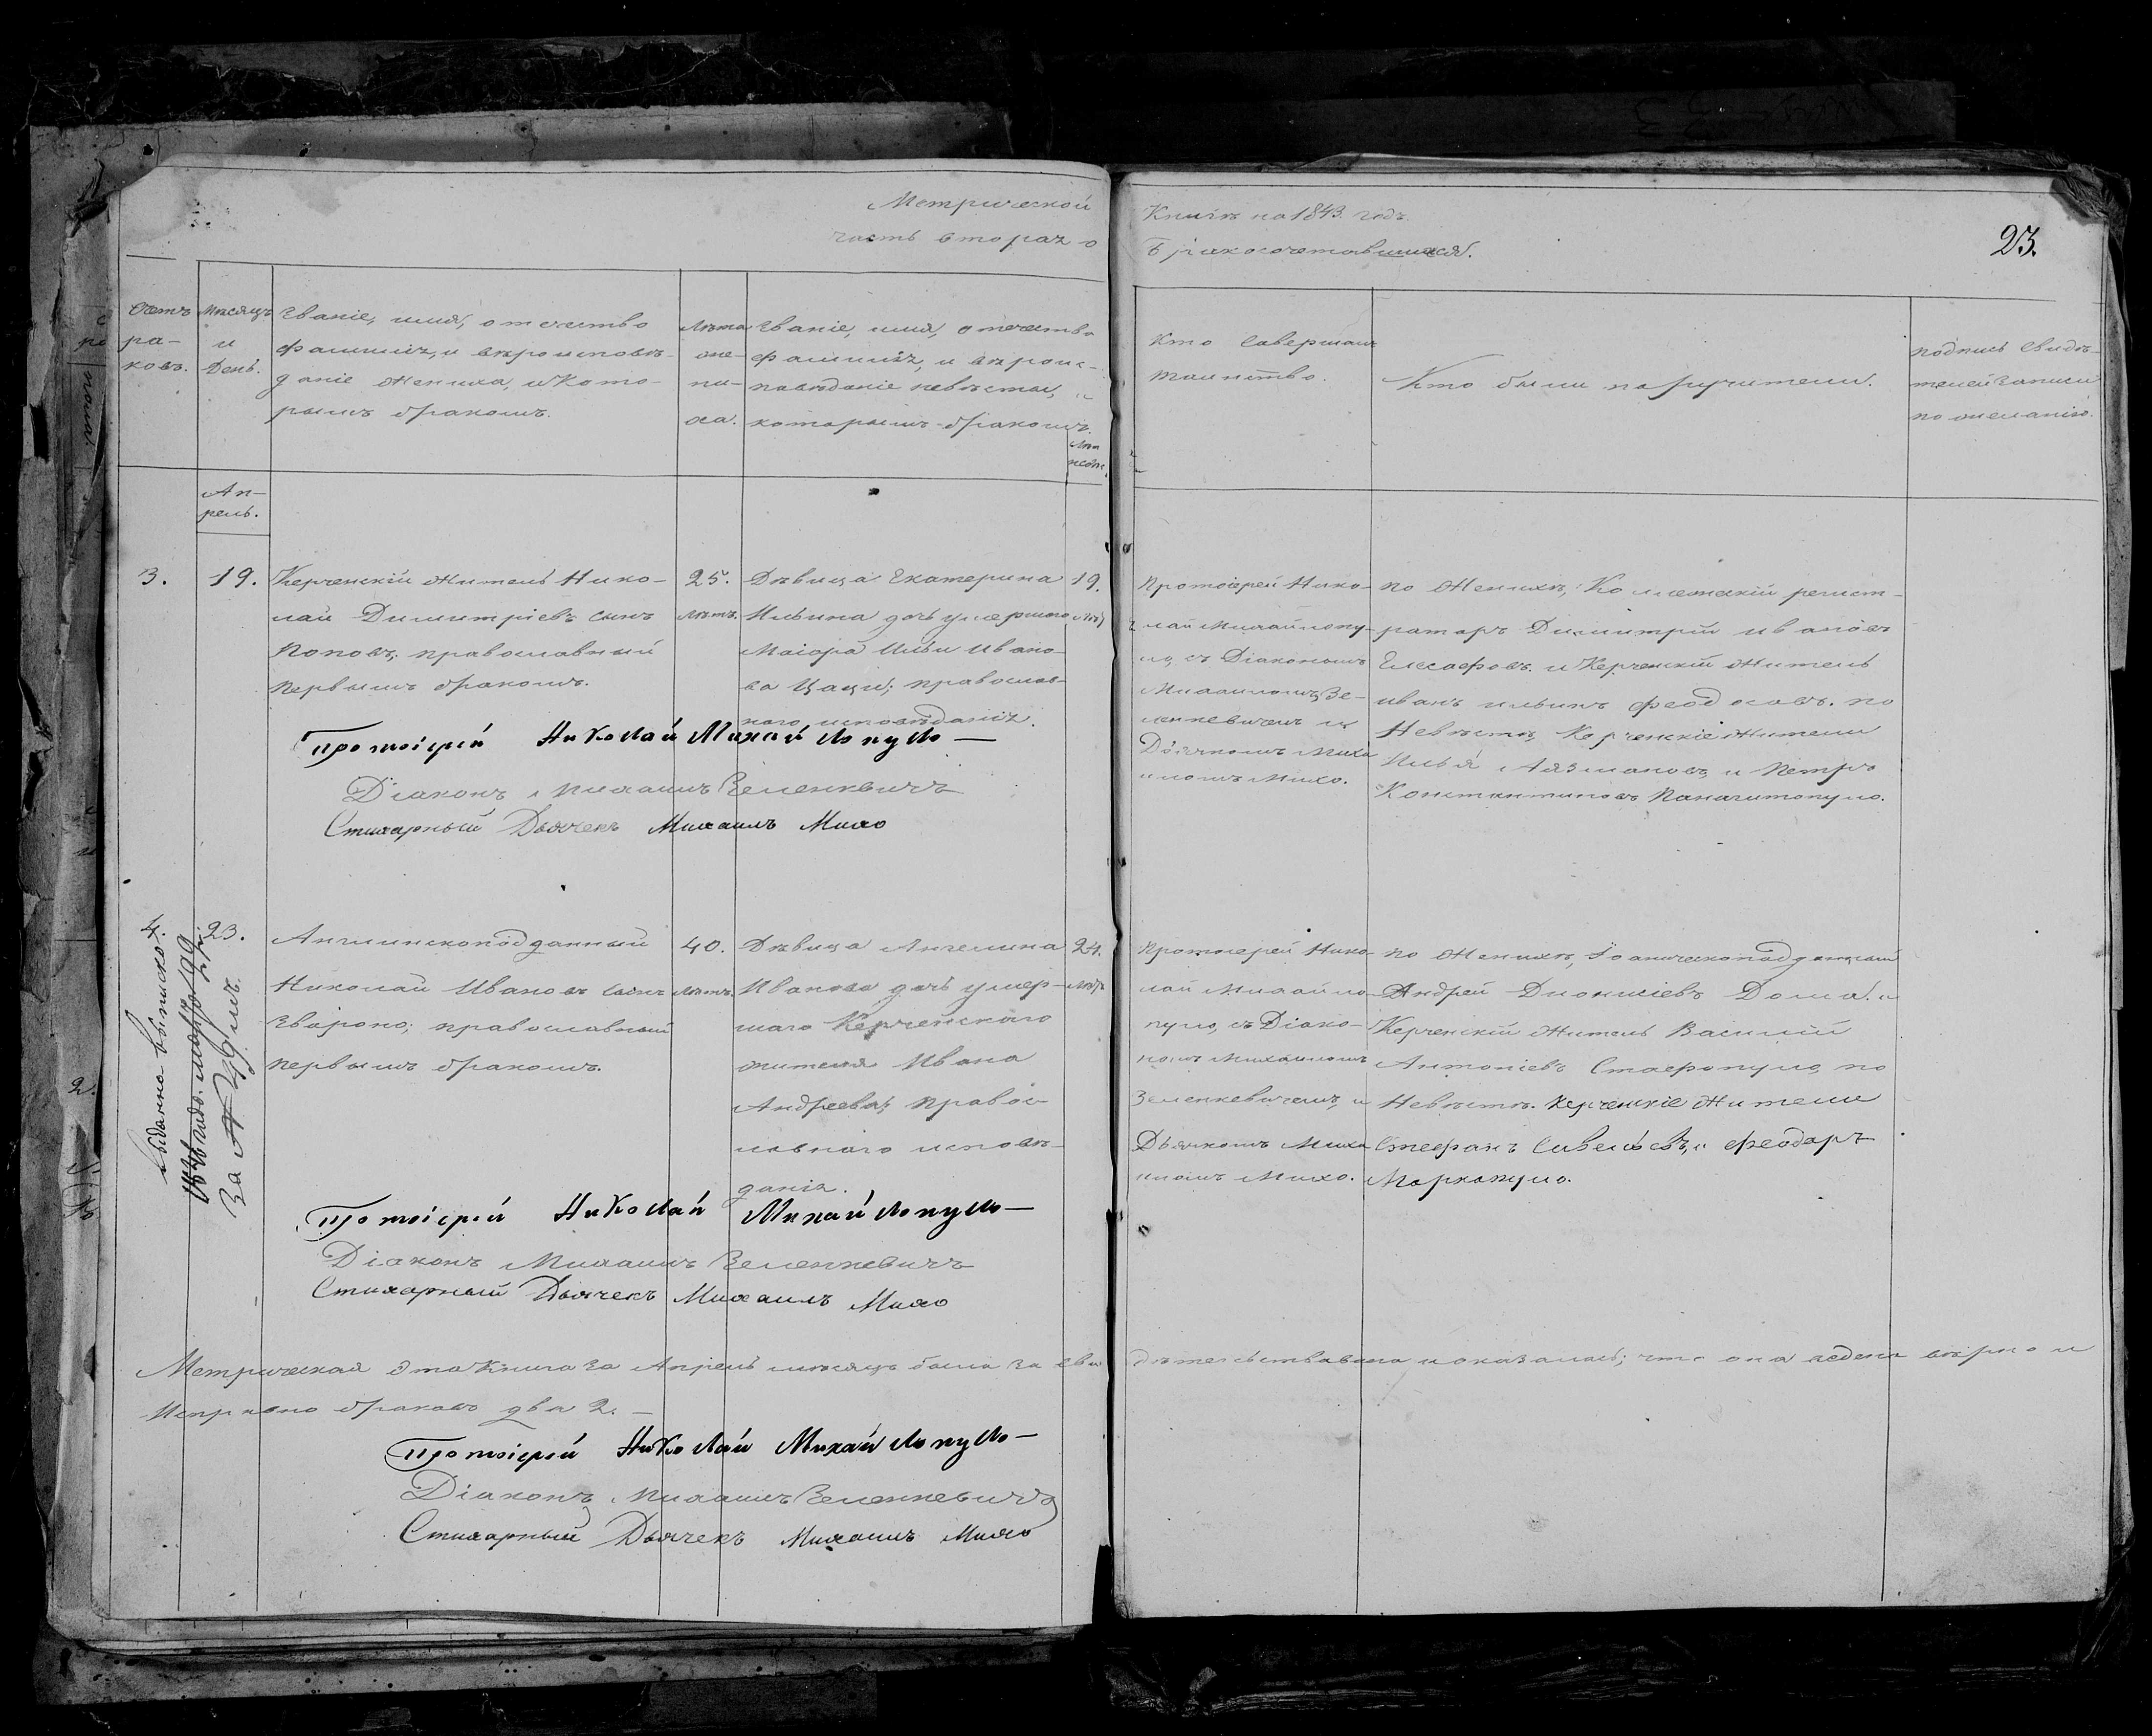 Метрической
часть вторая о
Книги на 1843 годъ.
Бракосочетавшихся.
23.
Счетъ
бра-
ковъ.
Мѣсяцъ
и
День.
Званіе, имя, отечество
фамилія, и вѣроисповѣ-
даніе Жениха, и кото-
рымъ бракомъ.
Лѣта
же-
ни-
ха.
Званіе, имя, отечество
фамилія, и вѣроис-
повѣданіе невѣсты, и
которымъ бракомъ.
Лѣта
невѣс.
Кто Совершалъ
таинство.
Кто были поручители.
подпись Свидѣ-
телей записи
по желанію.
Ап-
рель.
3.
19.
Керченскій Житель Нико-
лай Димитріевъ сынъ
Поповъ; православный
первымъ бракомъ.
25.
лѣтъ.
Дѣвица Екатерина
Ильина дочь умершаго
Маіора Ильи Ивано-
ва Цаци; православ-
наго исповѣданія.
19.
лѣтъ
Протоіерей Нико-
лай Михайлопу-
ло, съ Діакономъ
Михаиломъ Зе-
ленкевичемъ и
Дьячкомъ Миха
иломъ Михо.
по Женихѣ, Коллежскій регист-
раторъ Димитрій Ивановъ
Елисафовъ. и Керченскій Житель
Иванъ Ильинъ Феодосовъ. по
Невѣстѣ, Керченскіе Жители
Илья Аязмановъ, и Петръ
Константиновъ Панагитопуло.
Протоіерей Николай Михайлопуло —
Діаконъ Михаилъ Зеленкевичъ
Стихарный Дьячекъ Михаилъ Михо
4.
23.
выданна выписка
За №
Англинскоподданный
Николай Ивановъ сынъ
Звароно; православный
первымъ бракомъ.
40.
лѣтъ.
Дѣвица Ангелина
Иванова дочь умер-
шаго Керченскаго
жителя Ивана
Андреева; правос-
лавнаго исповѣ-
данія.
24.
лѣтъ
Протоіерей Нико-
лай Михайло-
пуло, съ Діако-
номъ Михаиломъ
Зеленкевичемъ, и
Дьячкомъ Миха
иломъ Михо.
по Женихѣ, Іоаническоподданный
Андрей Дионисіевъ Дома. и
Керченскій Житель Василій
Антоніевъ Стаефопуло, по
Невѣстѣ. Керченскіе Жители
Стефанъ Савельевъ, и Феодоръ
Маркопуло.
Протоіерей Николай Михайлопуло —
Діаконъ Михаилъ Зеленкевичъ
Стихарный Дьячекъ Михаилъ Михо
Метрическая эта Книга за Апрель мѣсяцъ была за сви дѣтельствована и оказалась; что она ведена вѣрно и
Исправно браковъ два 2. —
Протоіерей Николай Михайлопуло —
Діаконъ Михаилъ Зеленкевичъ
Стихарный Дьячекъ Михаилъ Михо